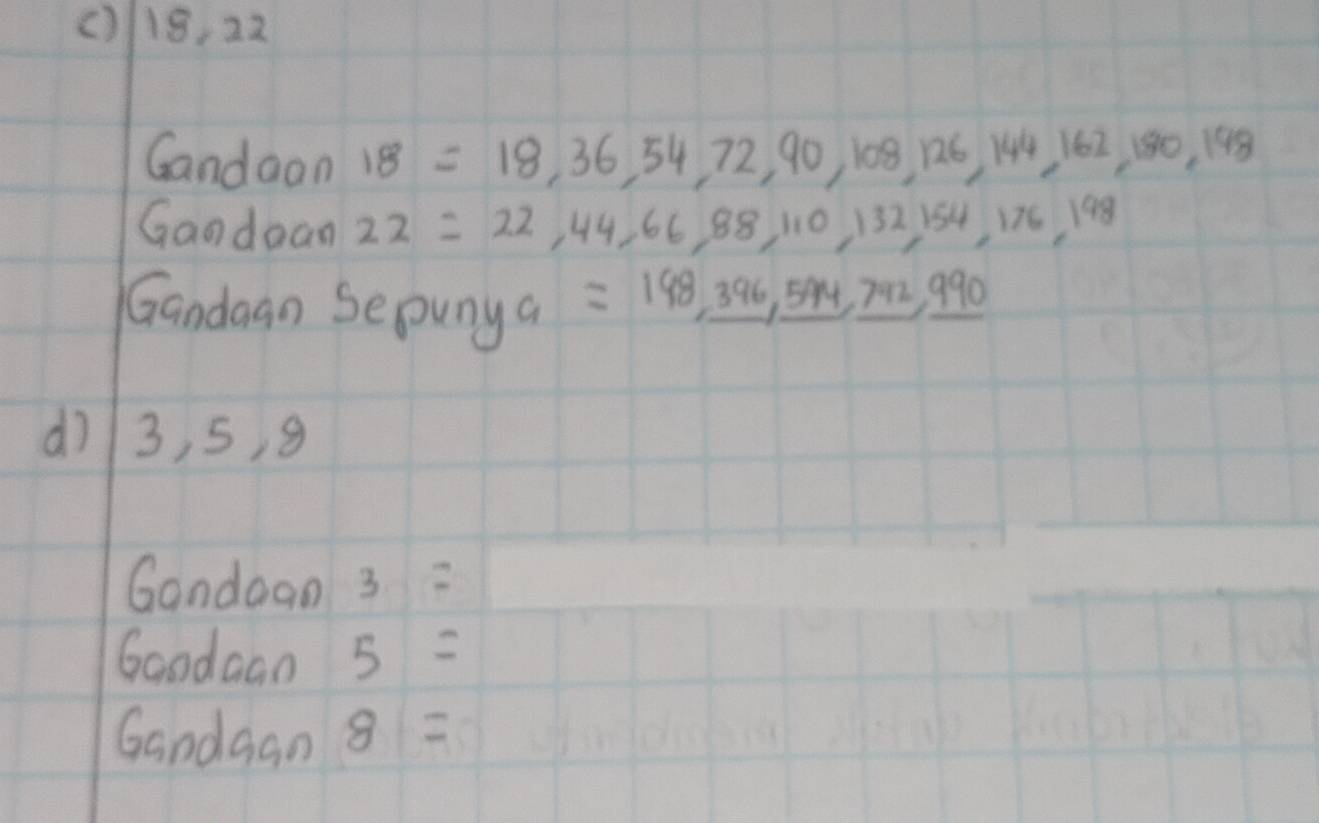 c) 18, 22
Gandaan 18 = 18, 36, 54, 72, 90, 108, 126, 144, 162, 180, 198
Gandaan 22 = 22, 44, 66, 88, 110, 132, 154, 176, 198
Gandaan Sepunya = 198, 396, 594, 792, 990
d) 3, 5, 8
Gandaan 3 =
Gandaan 5 =
Gandaan 8 =